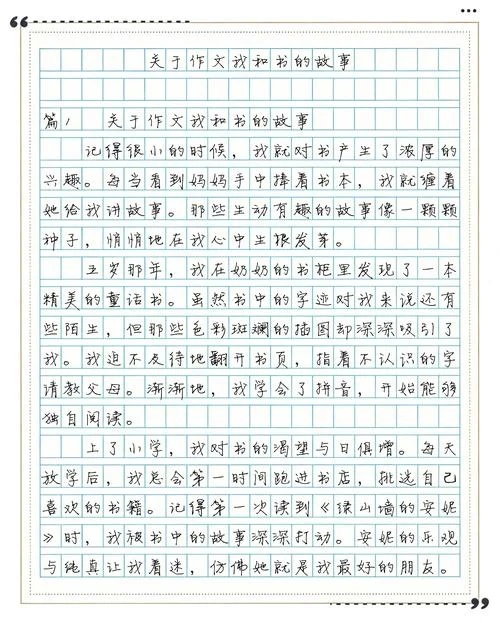 关于作文我和书的故事
篇1 关于作文我和书的故事
记得很小的时候，我就对书产生了浓厚的
兴趣。每当看到妈妈手中捧着书本，我就缠着
她给我讲故事。那些生动有趣的故事像一颗颗
种子，悄悄地在我心中生根发芽。
五岁那年，我在奶奶的书柜里发现了一本
精美的童话书。虽然书中的字迹对我来说还有
些陌生，但那些色彩斑斓的插图却深深吸引了
我。我迫不及待地翻开书页，指着不认识的字
请教父母。渐渐地，我学会了拼音，开始能够
独自阅读。
上了小学，我对书的渴望与日俱增。每天
放学后，我总会第一时间跑进书店，挑选自己
喜欢的书籍。记得第一次读到《绿山墙的安妮
》时，我被书中的故事深深打动。安妮的乐观
与纯真让我着迷，仿佛她就是我最好的朋友。